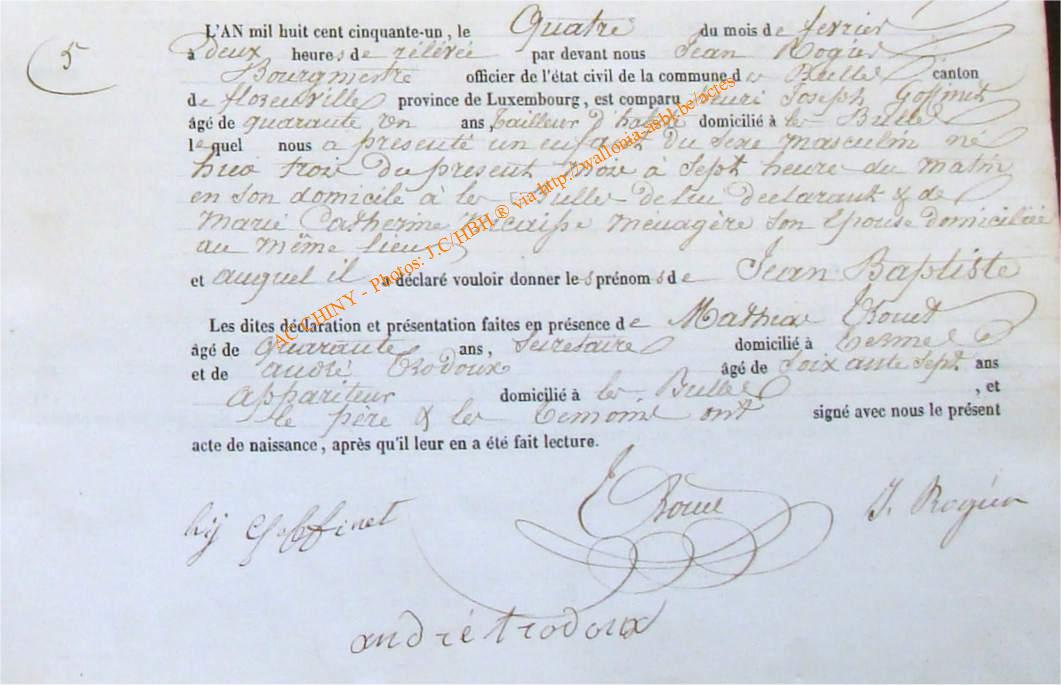 5
L'AN mil huit cent cinquante-un, le Quatre du mois de fevrier
à deux heures de rélévée par devant nous Jean Rogier
Bourgmestre officier de l'état civil de la commune de Bulles canton
de florenville province de Luxembourg, est comparu henri Joseph Goffinet
âgé de quarante un ans, tailleur d'habits domicilié à les Bulles
le quel nous a presenté un enfant du Sexe masculin né
hier trois du present mois à Sept heure du matin
en son domicile à les Bulles de lui declarant & de
Marie Catherine ménagère son Epouse domiciliée
au même lieu
et auquel il a déclaré vouloir donner les prénoms de Jean Baptiste
Les dites déclaration et présentation faites en présence de Mathias
âgé de quarante ans, Secretaire domicilié à termes
et de andré trodoux âgé de Soixante Sept ans
appariteur domicilié à les Bulles , et
le père & les temoins ont signé avec nous le présent
acte de naissance, après qu'il leur en a été fait lecture.
hij Goffinet J. Rogier
andré trodoux
AC CHINY - Photos: J.C/HBH ® via http://wallonia-asbl.be/actes